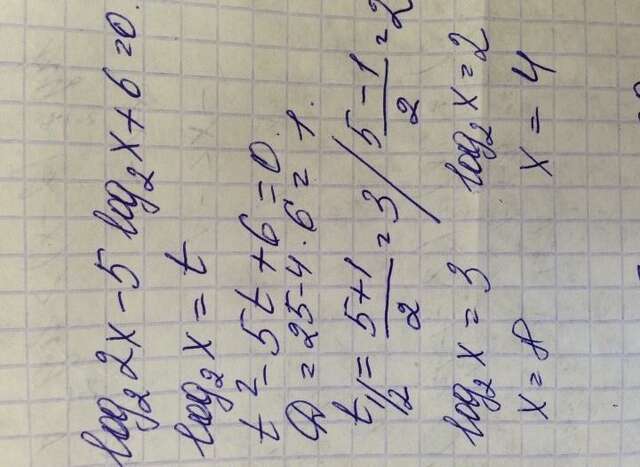 log₂2x-5log₂x+6=0.
log₂x=t
t²-5t+6=0.
D=25-4·6=1.
t₁/₂=5+1/2=3/5-1/2=2
log₂x=3 log₂x=2
x=8 x=4